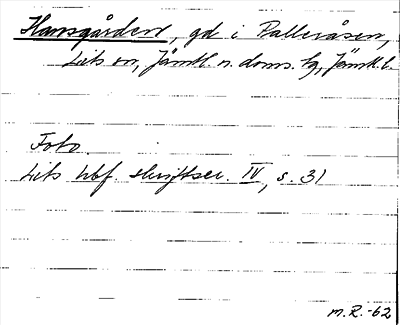 Hansgården, gd i Palleråsen,
Lits sn, Jämtl. n. doms. tg, Jämtl. l.
Foto.
Lits hbf. skriftser. IV, s. 31
M.R.-62